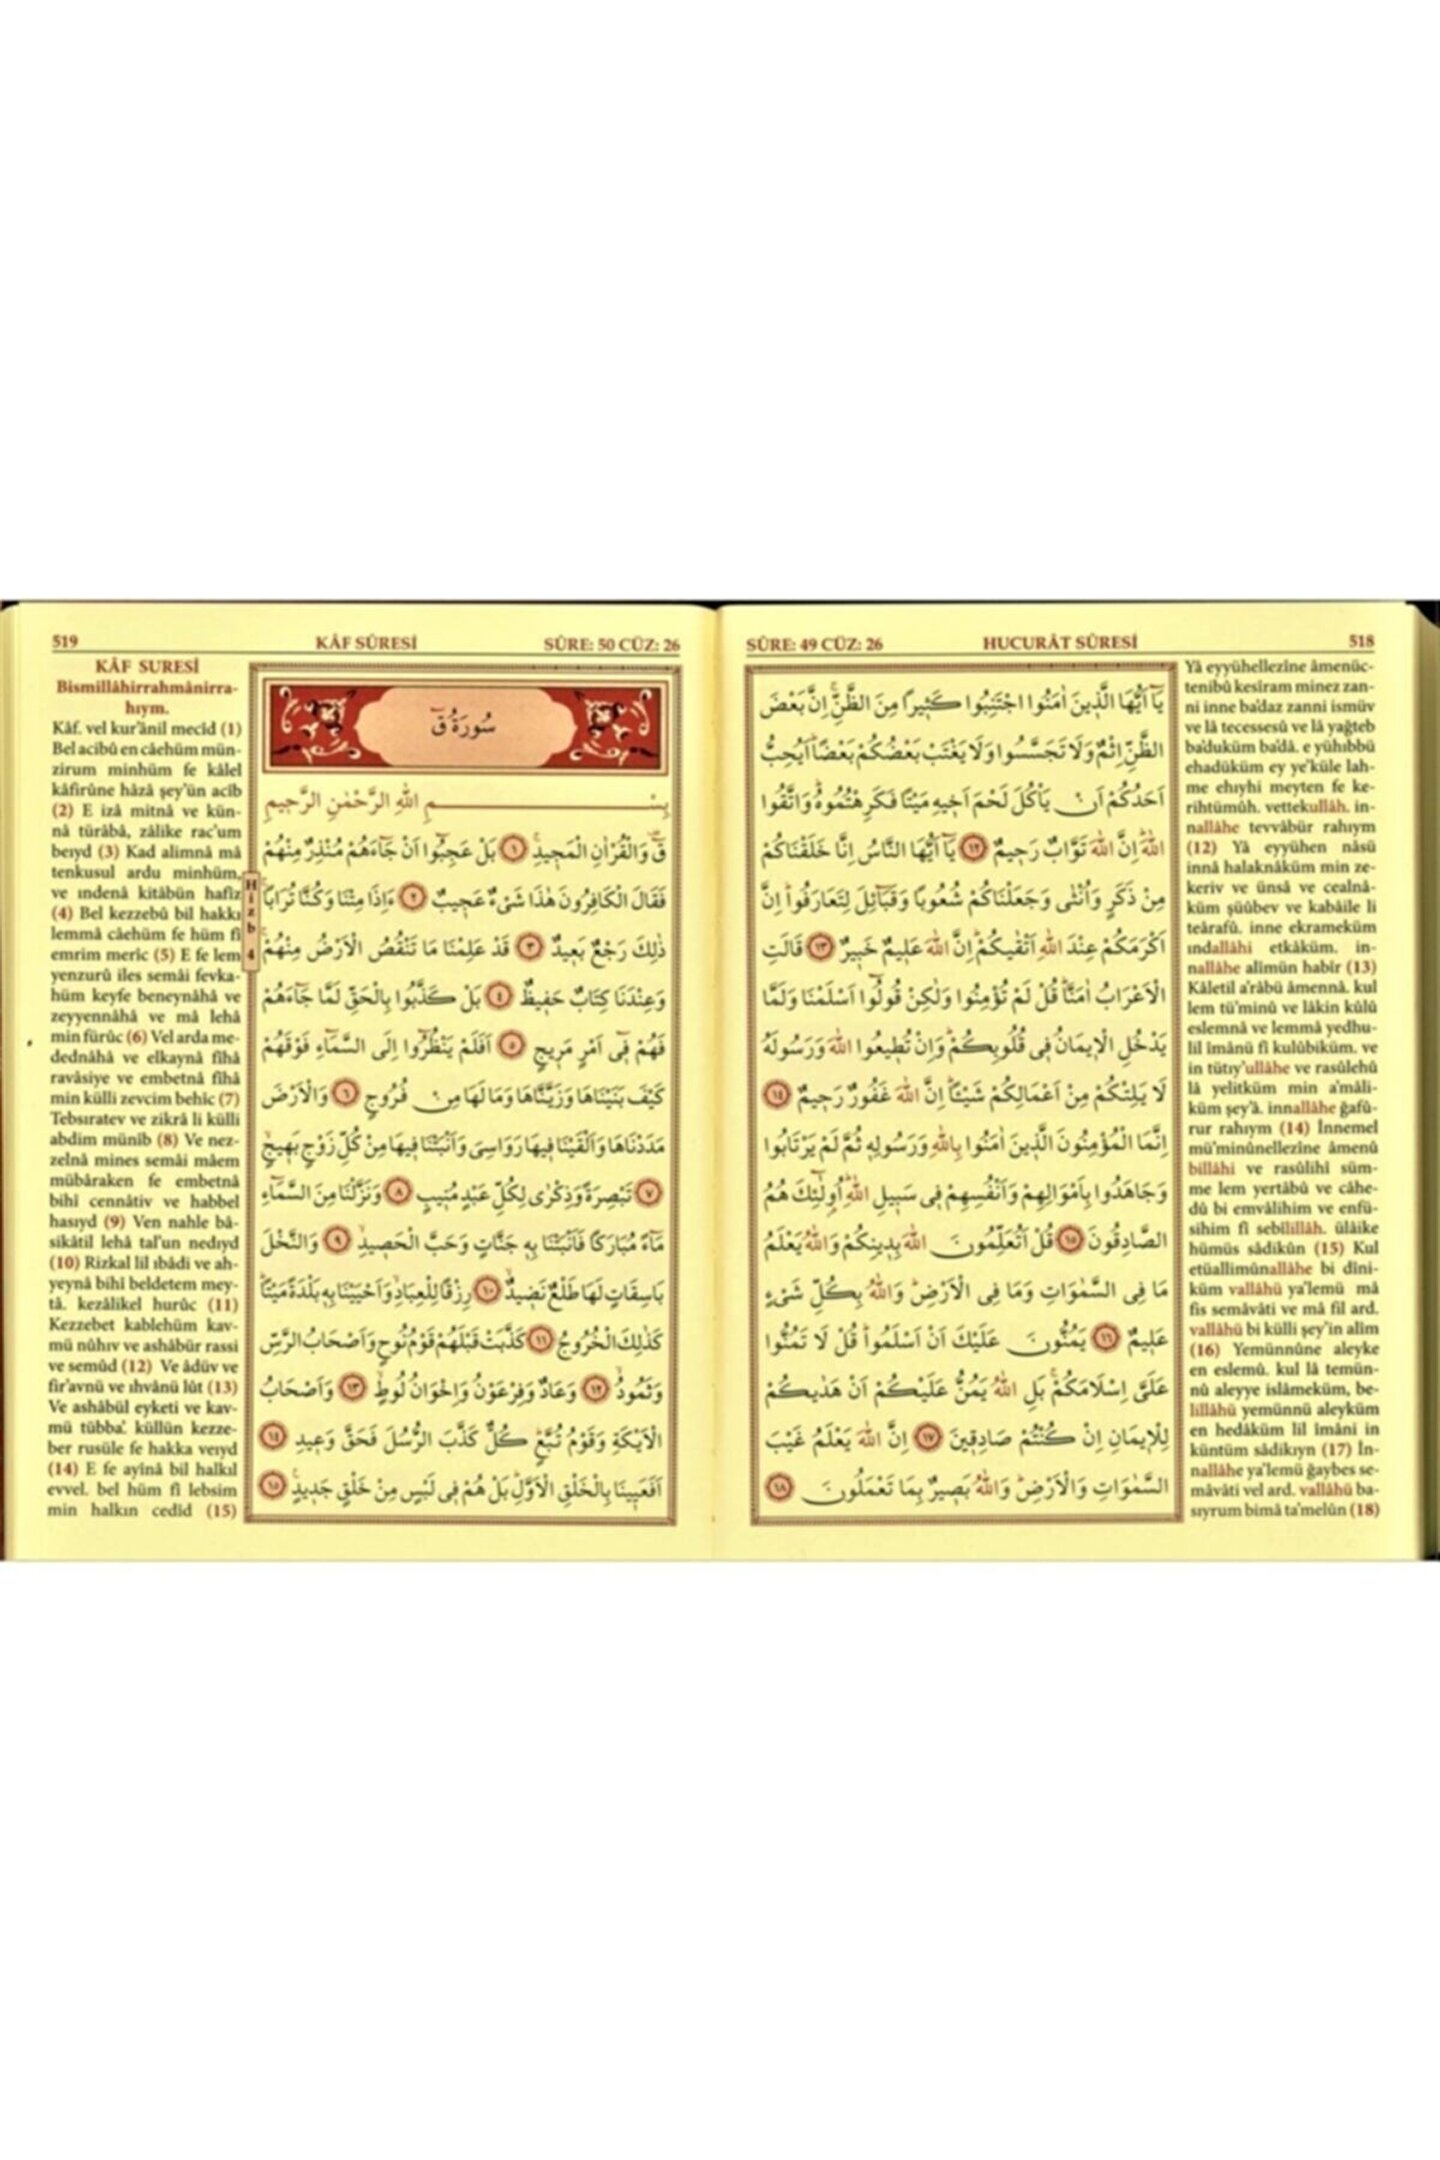 SÛRE: 49 CÜZ: 26 HUCURÂT SÛRESİ 518
يَٓا اَيُّهَا الَّذ۪ينَ اٰمَنُوا اجْتَنِبُوا كَث۪يرًا مِنَ الظَّنِّۘ اِنَّ بَعْضَ
الظَّنِّ اِثْمٌ وَلَا تَجَسَّسُوا وَلَا يَغْتَبْ بَعْضُكُمْ بَعْضًاۜ اَيُحِبُّ
اَحَدُكُمْ اَنْ يَأْكُلَ لَحْمَ اَخ۪يهِ مَيْتًا فَكَرِهْتُمُوهُۜ وَاتَّقُوا
اللّٰهَۜ اِنَّ اللّٰهَ تَوَّابٌ رَح۪يمٌ ﴿١٢﴾ يَٓا اَيُّهَا النَّاسُ اِنَّا خَلَقْنَاكُمْ
مِنْ ذَكَرٍ وَاُنْثٰى وَجَعَلْنَاكُمْ شُعُوبًا وَقَبَٓائِلَ لِتَعَارَفُواۜ اِنَّ
اَكْرَمَكُمْ عِنْدَ اللّٰهِ اَتْقٰيكُمْۜ اِنَّ اللّٰهَ عَل۪يمٌ خَب۪يرٌ ﴿١٣﴾ قَالَتِ
الْاَعْرَابُ اٰمَنَّاۜ قُلْ لَمْ تُؤْمِنُوا وَلٰكِنْ قُولُٓوا اَسْلَمْنَا وَلَمَّا
يَدْخُلِ الْا۪يمَانُ ف۪ي قُلُوبِكُمْۜ وَاِنْ تُط۪يعُوا اللّٰهَ وَرَسُولَهُ
لَا يَلِتْكُمْ مِنْ اَعْمَالِكُمْ شَيْـًٔاۜ اِنَّ اللّٰهَ غَفُورٌ رَح۪يمٌ ﴿١٤﴾
اِنَّمَا الْمُؤْمِنُونَ الَّذ۪ينَ اٰمَنُوا بِاللّٰهِ وَرَسُولِه۪ ثُمَّ لَمْ يَرْتَابُوا
وَجَاهَدُوا بِاَمْوَالِهِمْ وَاَنْفُسِهِمْ ف۪ي سَب۪يلِ اللّٰهِۜ اُو۬لٰٓئِكَ هُمُ
الصَّادِقُونَ ﴿١٥﴾ قُلْ اَتُعَلِّمُونَ اللّٰهَ بِد۪ينِكُمْ وَاللّٰهُ يَعْلَمُ
مَا فِي السَّمٰوَاتِ وَمَا فِي الْاَرْضِۜ وَاللّٰهُ بِكُلِّ شَيْءٍ
عَل۪يمٌ ﴿١٦﴾ يَمُنُّونَ عَلَيْكَ اَنْ اَسْلَمُواۜ قُلْ لَا تَمُنُّوا
عَلَيَّ اِسْلَامَكُمْۚ بَلِ اللّٰهُ يَمُنُّ عَلَيْكُمْ اَنْ هَدٰيكُمْ
لِلْا۪يمَانِ اِنْ كُنْتُمْ صَادِق۪ينَ ﴿١٧﴾ اِنَّ اللّٰهَ يَعْلَمُ غَيْبَ
السَّمٰوَاتِ وَالْاَرْضِۜ وَاللّٰهُ بَص۪يرٌ بِمَا تَعْمَلُونَ ﴿١٨﴾
Yâ eyyühellezîne âmenüc-
tenibû kesîram minez zan-
ni inne ba'daz zanni ismüv
ve lâ tecessesû ve lâ yağteb
ba'duküm ba'dâ. e yühıbbü
ehadüküm ey ye'küle lah-
me ehıyhi meyten fe ke-
rihtümûh. vettekullâh. in-
nallâhe tevvâbür rahıym
(12) Yâ eyyühen nâsü
innâ halaknâküm min ze-
keriv ve ünsâ ve cealnâ-
küm şüûbev ve kabâile li
teârafû. inne ekrameküm
ındallâhi etkâküm. in-
nallâhe alîmün habîr (13)
Kâletil a'râbü âmennâ. kul
lem tü'minû ve lâkin kûlû
eslemnâ ve lemmâ yedhu-
lil îmânü fî kulûbiküm. ve
in tütıy'ullâhe ve rasûlehû
lâ yelitküm min a'mâli-
küm şey'â. innallâhe ğafû-
rur rahıym (14) İnnemel
mü'minûnellezîne âmenû
billâhi ve rasûlihî süm-
me lem yertâbû ve câhe-
dû bi emvâlihim ve enfü-
sihim fî sebîlillâh. ülâike
hümüs sâdikûn (15) Kul
etüallimûnallâhe bi dîni-
küm vallâhü ya'lemü mâ
fis semâvâti ve mâ fil ard.
vallâhü bi külli şey'in alîm
(16) Yemünnûne aleyke
en eslemû. kul lâ temün-
nû aleyye islâmeküm, be-
lillâhü yemünnü aleyküm
en hedâküm lil îmâni in
küntüm sâdikıyn (17) İn-
nallâhe ya'lemü ğaybes se-
mâvâti vel ard. vallâhü ba-
sıyrum bimâ ta'melûn (18)
519 KÂF SÛRESİ SÛRE: 50 CÜZ: 26
سُورَةُ قٓ
بِسْمِ اللّٰهِ الرَّحْمٰنِ الرَّح۪يمِ
قٓ۠ وَالْقُرْاٰنِ الْمَج۪يدِۚ ﴿١﴾ بَلْ عَجِبُٓوا اَنْ جَٓاءَهُمْ مُنْذِرٌ مِنْهُمْ
فَقَالَ الْكَافِرُونَ هٰذَا شَيْءٌ عَج۪يبٌ ﴿٢﴾ ءَاِذَا مِتْنَا وَكُنَّا تُرَابًاۚ
ذٰلِكَ رَجْعٌ بَع۪يدٌ ﴿٣﴾ قَدْ عَلِمْنَا مَا تَنْقُصُ الْاَرْضُ مِنْهُمْۚ
وَعِنْدَنَا كِتَابٌ حَف۪يظٌ ﴿٤﴾ بَلْ كَذَّبُوا بِالْحَقِّ لَمَّا جَٓاءَهُمْ
فَهُمْ ف۪ٓي اَمْرٍ مَر۪يجٍ ﴿٥﴾ اَفَلَمْ يَنْظُرُٓوا اِلَى السَّمَٓاءِ فَوْقَهُمْ
كَيْفَ بَنَيْنَاهَا وَزَيَّنَّاهَا وَمَا لَهَا مِنْ فُرُوجٍ ﴿٦﴾ وَالْاَرْضَ
مَدَدْنَاهَا وَاَلْقَيْنَا ف۪يهَا رَوَاسِيَ وَاَنْبَتْنَا ف۪يهَا مِنْ كُلِّ زَوْجٍ بَه۪يجٍۙ
﴿٧﴾ تَبْصِرَةً وَذِكْرٰى لِكُلِّ عَبْدٍ مُن۪يبٍ ﴿٨﴾ وَنَزَّلْنَا مِنَ السَّمَٓاءِ
مَٓاءً مُبَارَكًا فَاَنْبَتْنَا بِه۪ جَنَّاتٍ وَحَبَّ الْحَص۪يدِۙ ﴿٩﴾ وَالنَّخْلَ
بَاسِقَاتٍ لَهَا طَلْعٌ نَض۪يدٌۙ ﴿١٠﴾ رِزْقًا لِلْعِبَادِۙ وَاَحْيَيْنَا بِه۪ بَلْدَةً مَيْتًاۜ
كَذٰلِكَ الْخُرُوجُ ﴿١١﴾ كَذَّبَتْ قَبْلَهُمْ قَوْمُ نُوحٍ وَاَصْحَابُ الرَّسِّ
وَثَمُودُۙ ﴿١٢﴾ وَعَادٌ وَفِرْعَوْنُ وَاِخْوَانُ لُوطٍۙ ﴿١٣﴾ وَاَصْحَابُ
الْاَيْكَةِ وَقَوْمُ تُبَّعٍۜ كُلٌّ كَذَّبَ الرُّسُلَ فَحَقَّ وَع۪يدِ ﴿١٤﴾
اَفَعَي۪ينَا بِالْخَلْقِ الْاَوَّلِۜ بَلْ هُمْ ف۪ي لَبْسٍ مِنْ خَلْقٍ جَد۪يدٍ۟ ﴿١٥﴾
Hizb 4
KÂF SURESİ
Bismillâhirrahmânirra-
hıym.
Kâf. vel kur'ânil mecîd (1)
Bel acibû en câehüm mün-
zirum minhüm fe kâlel
kâfirûne hâzâ şey'ün acîb
(2) E izâ mitnâ ve kün-
nâ türâbâ, zâlike rac'um
beıyd (3) Kad alimnâ mâ
tenkusul ardu minhüm,
ve ındenâ kitâbün hafîz
(4) Bel kezzebû bil hakkı
lemmâ câehüm fe hüm fî
emrim merîc (5) E fe lem
yenzurû iles semâi fevka-
hüm keyfe beneynâhâ ve
zeyyennâhâ ve mâ lehâ
min fürûc (6) Vel arda me-
dednâhâ ve elkaynâ fîhâ
ravâsiye ve embetnâ fîhâ
min külli zevcim behîc (7)
Tebsıratev ve zikrâ li külli
abdim münîb (8) Ve nez-
zelnâ mines semâi mâem
mübâraken fe embetnâ
bihî cennâtiv ve habbel
hasıyd (9) Ven nahle bâ-
sikâtil lehâ tal'un nedıyd
(10) Rizkal lil ıbâdi ve ah-
yeynâ bihî beldetem mey-
tâ. kezâlikel hurûc (11)
Kezzebet kablehüm kav-
mü nûhıv ve ashâbür rassi
ve semûd (12) Ve âdüv ve
fir'avnü ve ıhvânü lût (13)
Ve ashâbül eyketi ve kav-
mü tübba'. küllün kezze-
ber rusüle fe hakka veıyd
(14) E fe ayînâ bil halkıl
evvel. bel hüm fî lebsim
min halkın cedîd (15)